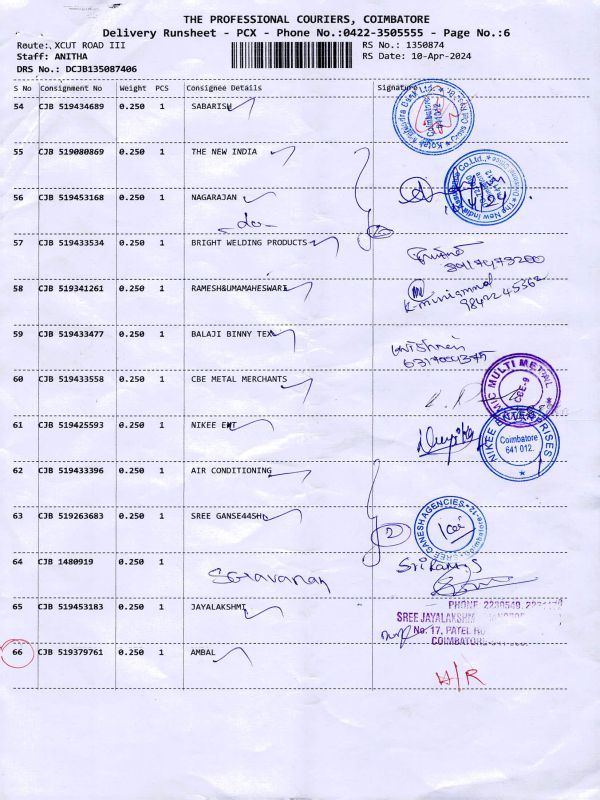 THE PROFESSIONAL COURIERS, COIMBATORE
Delivery Runsheet - PCX - Phone No.:0422-3505555 - Page No.:6
Route: XCUT ROAD III RS No.: 1350874
Staff: ANITHA RS Date: 10-Apr-2024
DRS No.: DCJB135087406
S No Consignment No Weight PCS Consignee Details Signature
54 CJB 519434689 0.250 1 SABARISH
55 CJB 519080869 0.250 1 THE NEW INDIA
56 CJB 519453168 0.250 1 NAGARAJAN
-do-
57 CJB 519433534 0.250 1 BRIGHT WELDING PRODUCTS
58 CJB 519341261 0.250 1 RAMESH&UMAMAHESWARI
K-muniammal
9842245362
59 CJB 519433477 0.250 1 BALAJI BINNY TEX
60 CJB 519433558 0.250 1 CBE METAL MERCHANTS
MULTI METAL
CBE-9
61 CJB 519425593 0.250 1 NIKEE ENT
NIKEE ENTERPRISES
Coimbatore
641 012.
62 CJB 519433396 0.250 1 AIR CONDITIONING
63 CJB 519263683 0.250 1 SREE GANSE44SH
2
SREE GANESH AGENCIES
Coimbatore-12
64 CJB 1480919 0.250 1
Saravanan
65 CJB 519453183 0.250 1 JAYALAKSHMI
PHONE
SREE JAYALAKSHMI
No. 17, PATEL
COIMBATORE
66 CJB 519379761 0.250 1 AMBAL
H/R